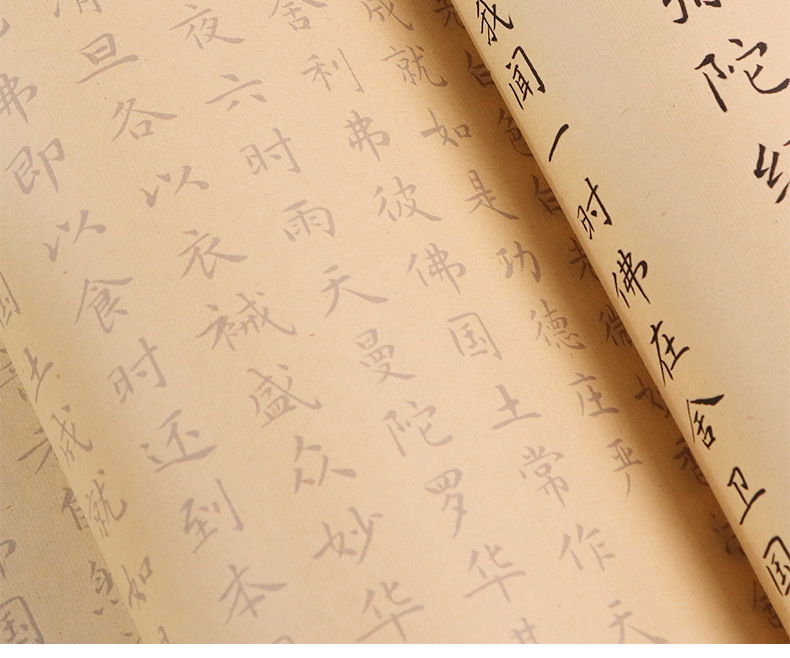 陀
我闻一时佛在舍卫国
白色白光微妙
成就如是功德庄严
舍利弗彼佛国土常作天
夜六时雨天曼陀罗华
清旦各以衣裓盛众妙华
佛即以食时还到本
土成就如